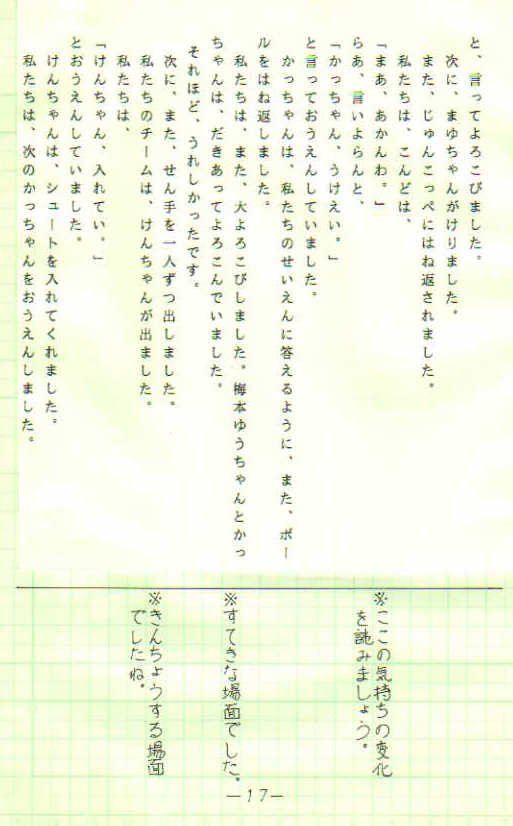 と、言ってよろこびました。
次に、まゆちゃんがけりました。
また、じゅんこっぺにはね返されました。
私たちは、こんどは、
「まあ、あかんわ。」
らあ、言いよらんと、
「かっちゃん、うけえい。」
と言っておうえんしていました。
かっちゃんは、私たちのせいえんに答えるように、また、ボー
ルをはね返しました。
私たちは、また、大よろこびしました。梅本ゆうちゃんとかっ
ちゃんは、だきあってよろこんでいました。
それほど、うれしかったです。
次に、また、せん手を一人ずつ出しました。
私たちのチームは、けんちゃんが出ました。
私たちは、
「けんちゃん、入れてい。」
とおうえんしていました。
けんちゃんは、シュートを入れてくれました。
私たちは、次のかっちゃんをおうえんしました。
※ここの気持ちの変化
を読みましょう。
※すてきな場面でした。
※きんちょうする場面
でしたね。
—17—